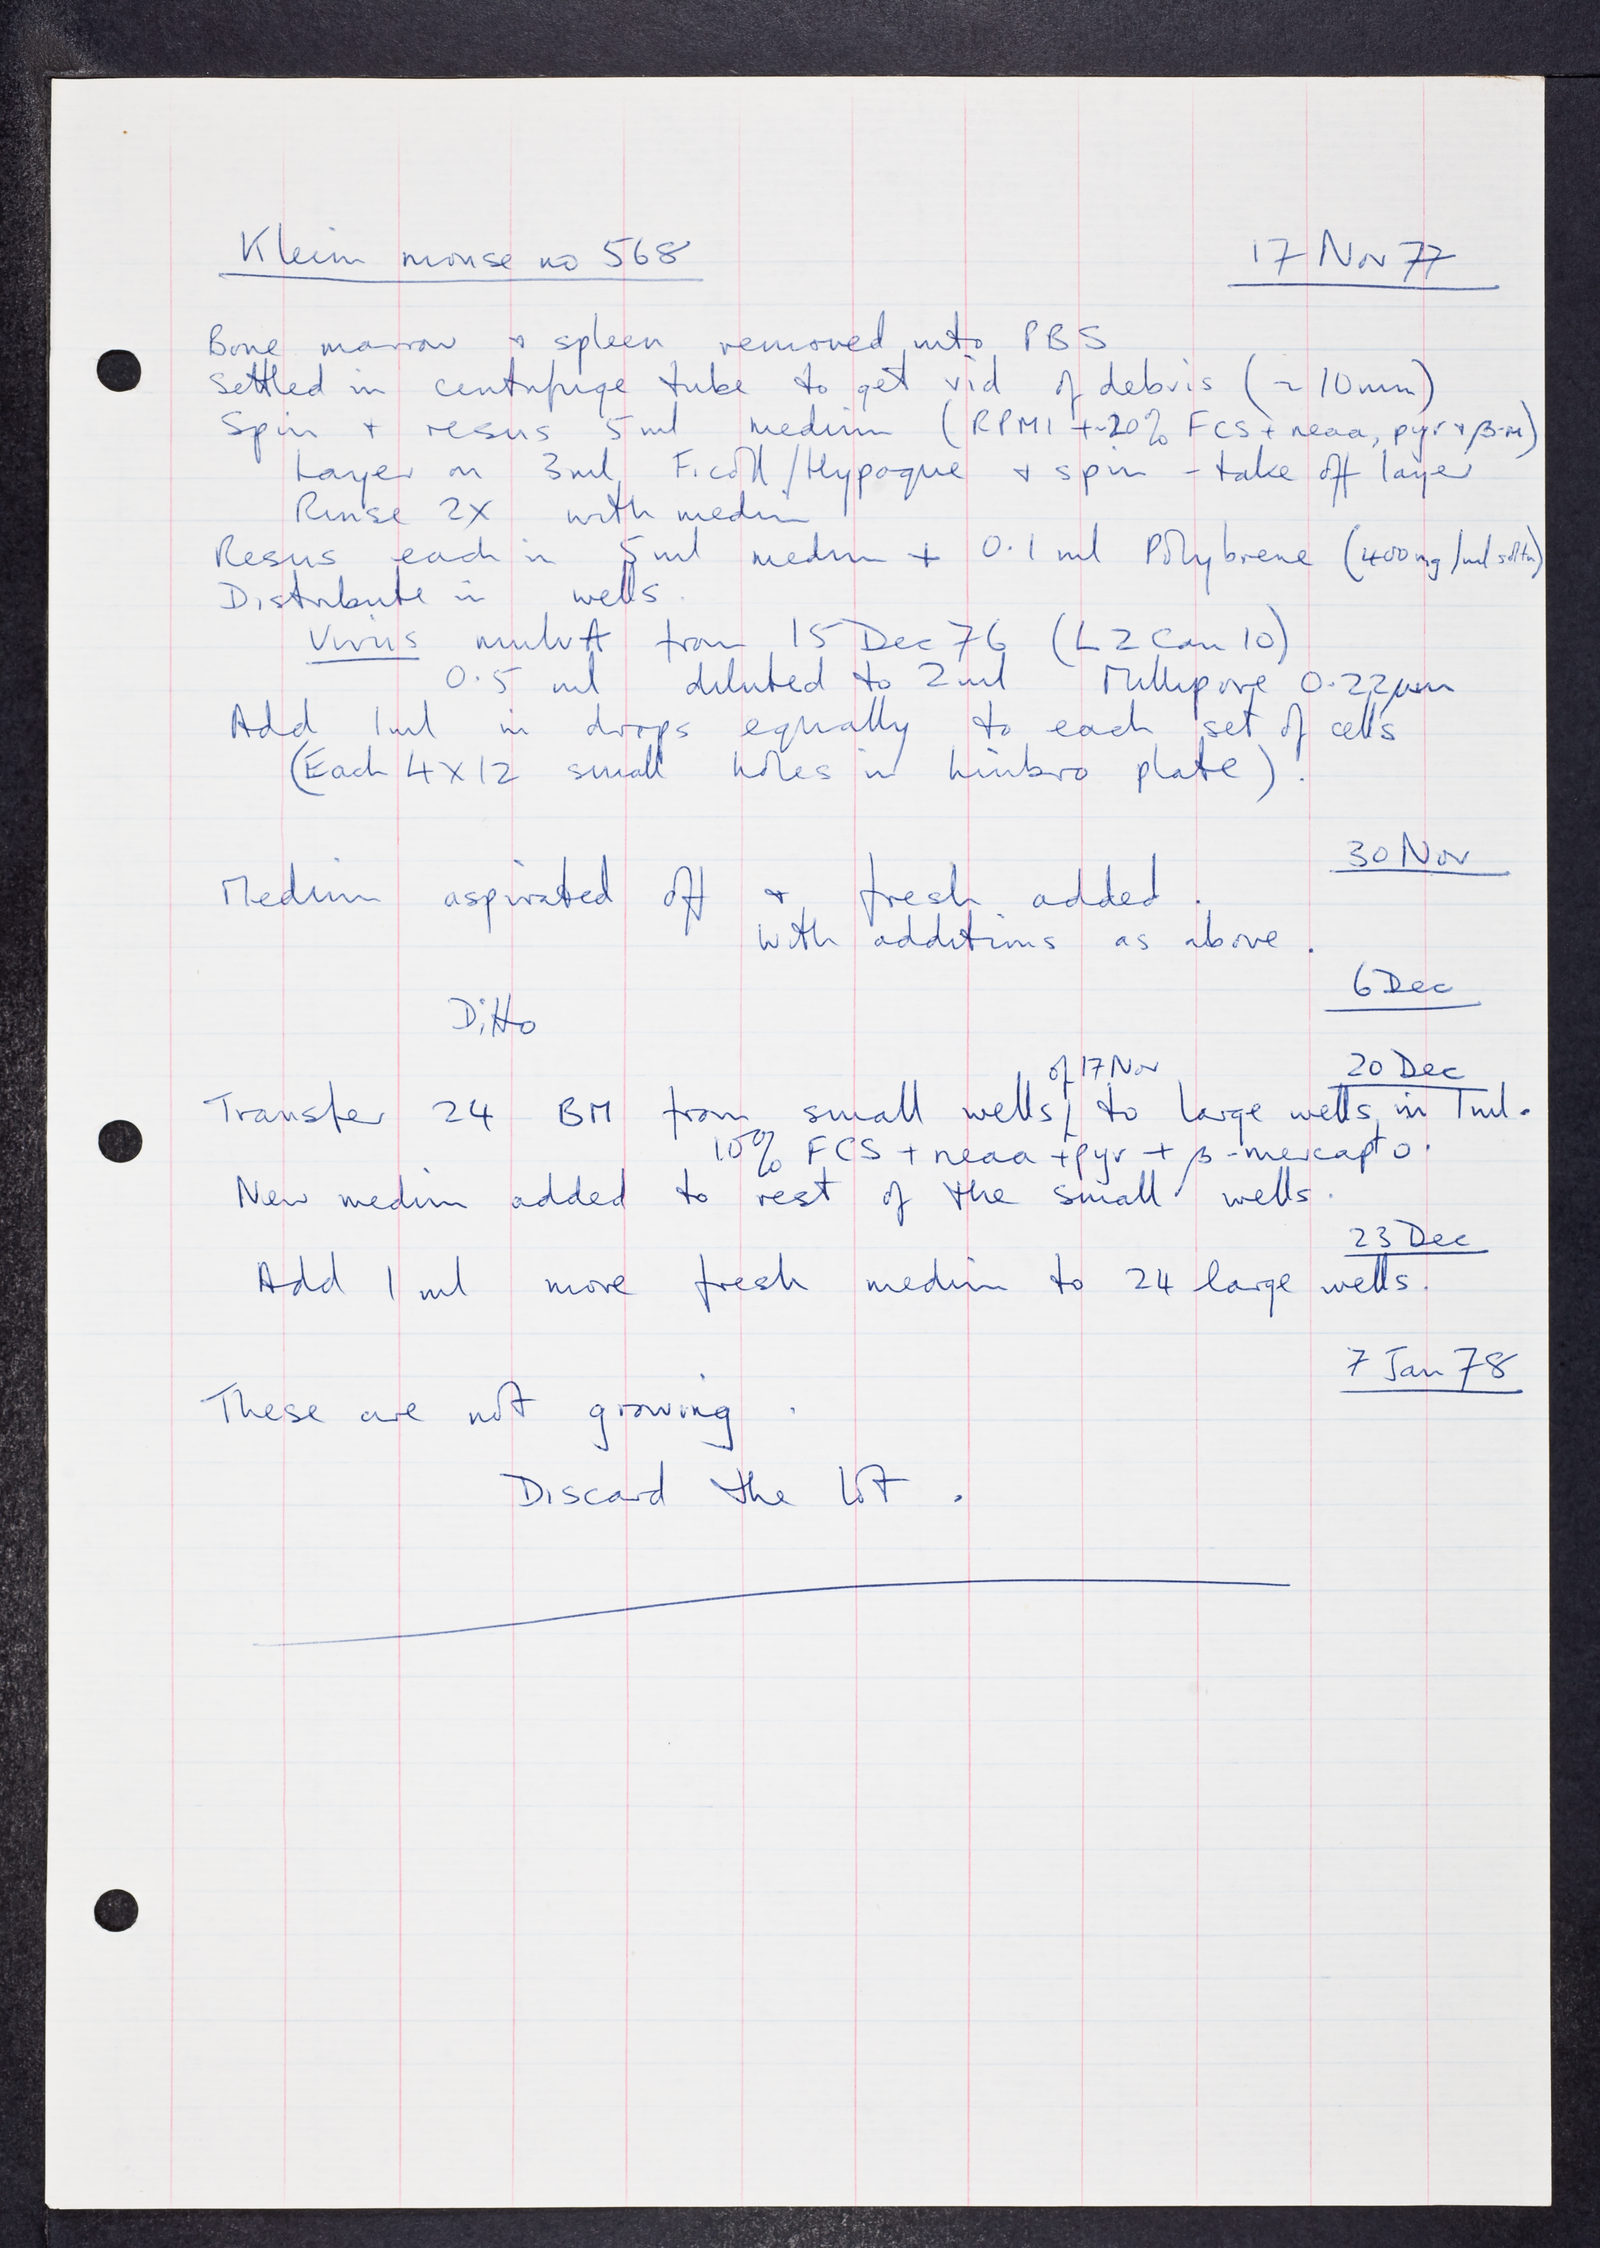 Klein mouse no 568
17 Nov 77
Bone marrow + spleen removed into PBS
Settled in centrifuge tube to get rid of debris (~ 10min)
Spin + resus 5ml medium (RPMI + 20% FCS + neaa, pyr + β-M)
Layer on 3ml Ficoll/Hypaque + spin - take off layer
Rinse 2X with medium
Resus each in 5ml medium + 0.1 ml Polybrene (400mg/ml soltn)
Distribute in wells.
Virus from 15 Dec 76 (L2 Can 10)
0.5 ml diluted to 2ml Millipore 0.22μm
Add 1ml in drops equally to each set of cells
(Each 4X12 small holes in Linbro plate).
30 Nov
Medium aspirated off + fresh added.
with additions as above.
6 Dec
Ditto
20 Dec
of 17 Nov
Transfer 24 BM from small wells to large wells in 1ml.
10% FCS + neaa + pyr + β-mercapto.
New medium added to rest of the small wells.
23 Dec
Add 1 ml more fresh medium to 24 large wells.
7 Jan 78
These are not growing.
Discard the lot.